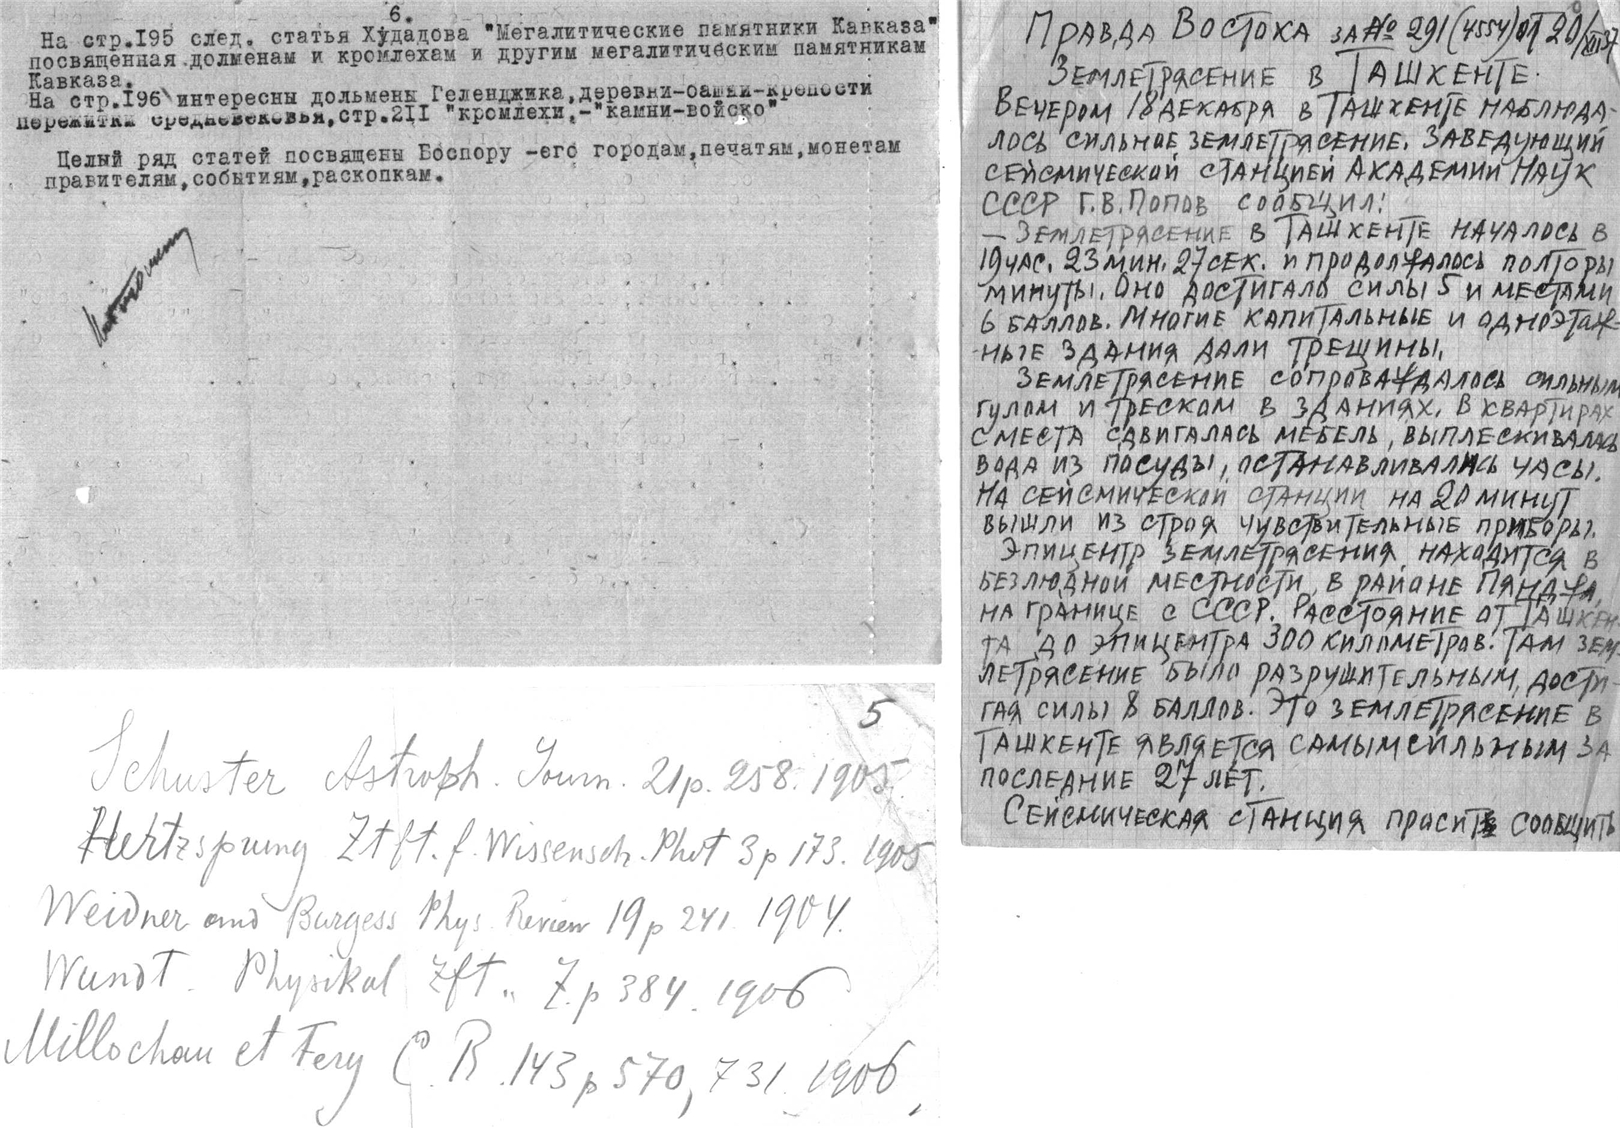 6.
На стр.195 след. статья Худадова "Мегалитические памятники Кавказа"
посвященная долменам и кромлехам и другим мегалитическим памятникам
Кавказа.
На стр.196 интересны дольмены Геленджика,деревни-башни-крепости
пережитки средневековья,стр.211 "кромлехи,-"камни-войско"
Целый ряд статей посвящены Боспору -его городам,печатям,монетам
правителям,событиям,раскопкам.
5
Schuster Astroph. Journ. 21p. 258. 1905.
Hertzsprung Ztft. f. Wissensch. Phot 3p 173. 1905
Weidner and Burgess Phys. Review 19p 241. 1904.
Wundt. Physikal Zft.. 7.p 384. 1906
Millochau et Fery C. R. 143p 570, 731. 1906,
Правда Востока за № 291(4554)от 20/XII37
Землетрясение в Ташкенте.
Вечером 18 декабря в Ташкенте наблюда-
лось сильное землетрясение. Заведующий
сейсмической станцией Академии Наук
СССР Г.В.Попов сообщил:
— Землетрясение в Ташкенте началось в
19 час. 23 мин. 27 сек. и продолжалось полторы
минуты. Оно достигало силы 5 и местами
6 баллов. Многие капитальные и одноэтаж-
-ные здания дали трещины.
Землетрясение сопровождалось сильным
гулом и треском в зданиях. В квартирах
с места сдвигалась мебель, выплескивалась
вода из посуды, останавливались часы.
На сейсмической станции на 20 минут
вышли из строя чувствительные приборы.
Эпицентр землетрясения находится в
безлюдной местности, в районе Пянджа,
на границе с СССР. Расстояние от Ташкен-
та до эпицентра 300 километров. Там зем-
летрясение было разрушительным, дости-
гая силы 8 баллов. Это землетрясение в
Ташкенте является самым сильным за
последние 27 лет.
Сейсмическая станция просит сообщить